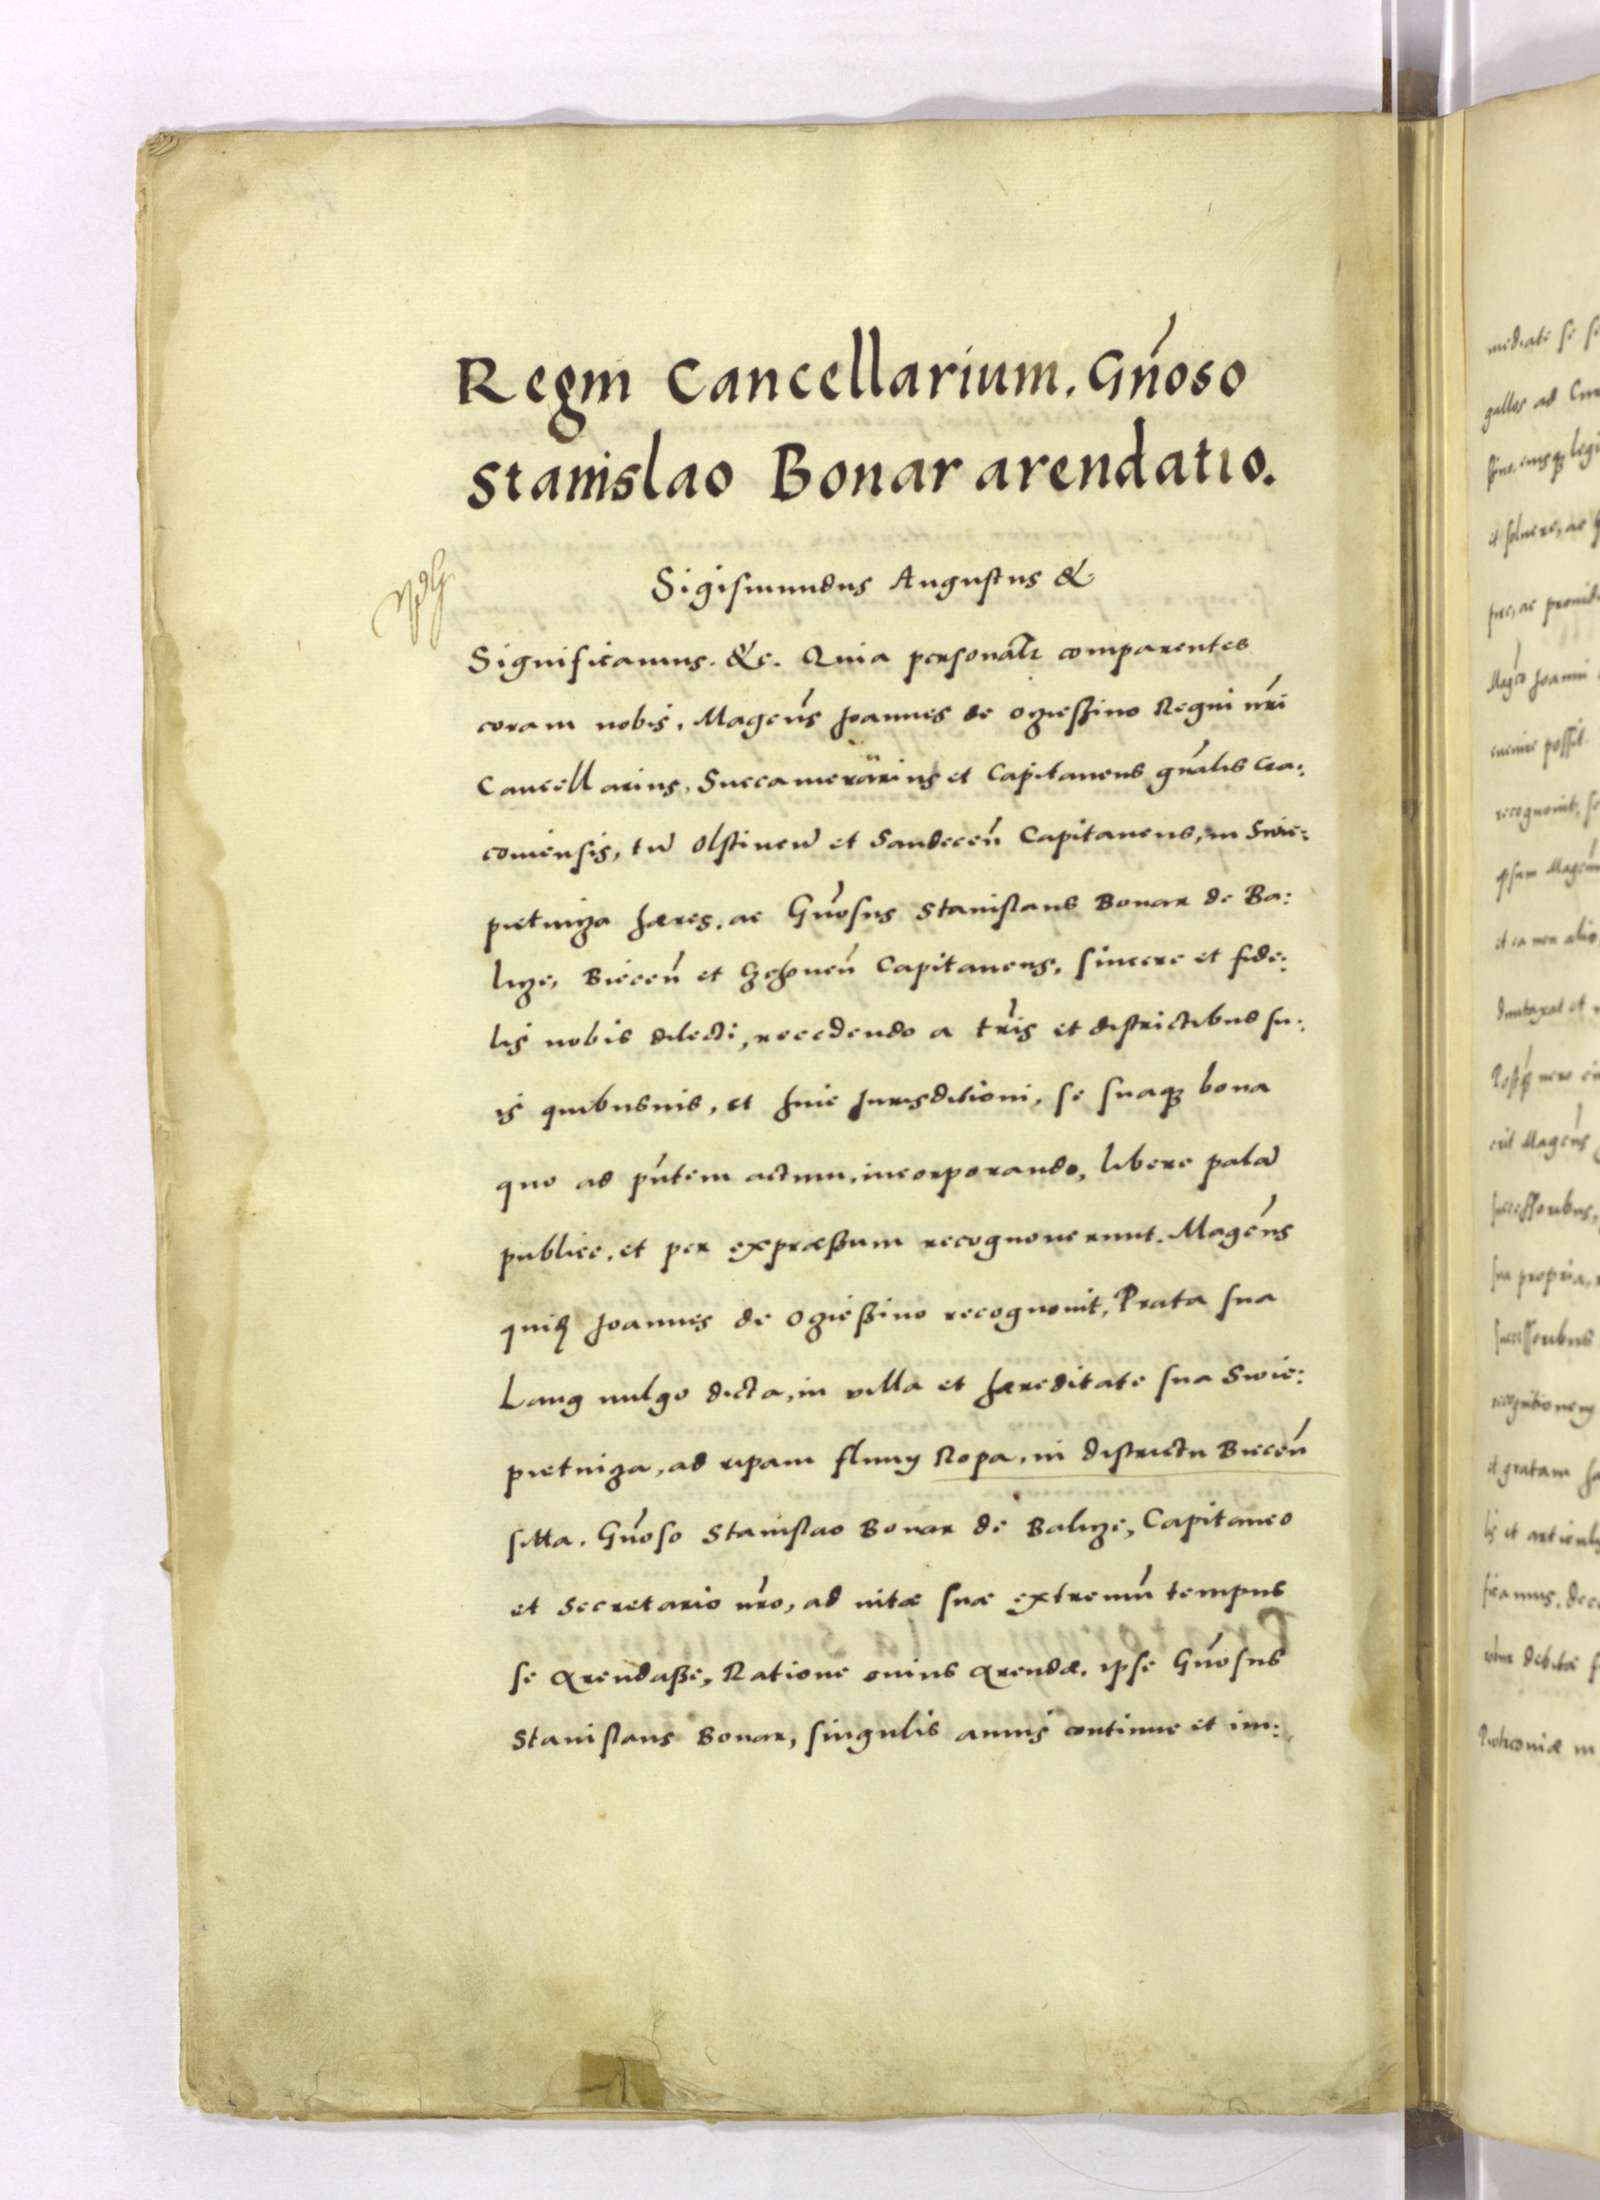 Regni Cancellarium. Gn̄oso
Stanislao Bonar arendatio.
Sigismundus Augustus &
Significamus. &c. Quia personalr̄ comparentes
coram nobis, Magcūs Joannes de ozießino Regni nr̄i
Cancellarius, Succamerarius et Capitaneus gn̄alis Cra:
couiensis, tū Olstineū et Sandeceń Capitaneus, in Swie:
pietniza hæres, ac Gn̄osus Stanislaus Bonar de Ba:
lize, Bieceń et Capitaneus, sincere et fide:
lis nobis dilecti, recedendo a tr̄is et districtibus su:
is quibusuis, et huic Jurisditioni, se suaqꝫ bona
quo ad pn̄tem actum, incorporando, libere palā
publice, et per expræßum recognouerunt. Magcn̄s
quidē Joannes de Ozießino recognouit, Prata sua
Lang uulgo dicta, in villa et hæreditate sua Swie:
pietniza, ad ripam fluuij Ropa, in districtu Bieceń
sitta, Gn̄oso Stanislao Bonar de Balize, Capitaneo
et Secretario nr̄o, ad uitæ suæ extremū tempus
se arendaße, Ratione cuius arendæ, ipse Gn̄osus
Stanislaus Bonar, singulis annis continue et im:
mediate se
gallos ad
eiusqꝫ
et soluere, ac
Magco Joanni
euenire possit.
recognouit,
ipsum
et ea non alio,
duntaxat et
uero
erit Magcn̄s
successoribus,
sua propria,
successoribus
recognitionem
et gratam
lis et articulis
ficamus,
debitæ
Piotrcouiæ in